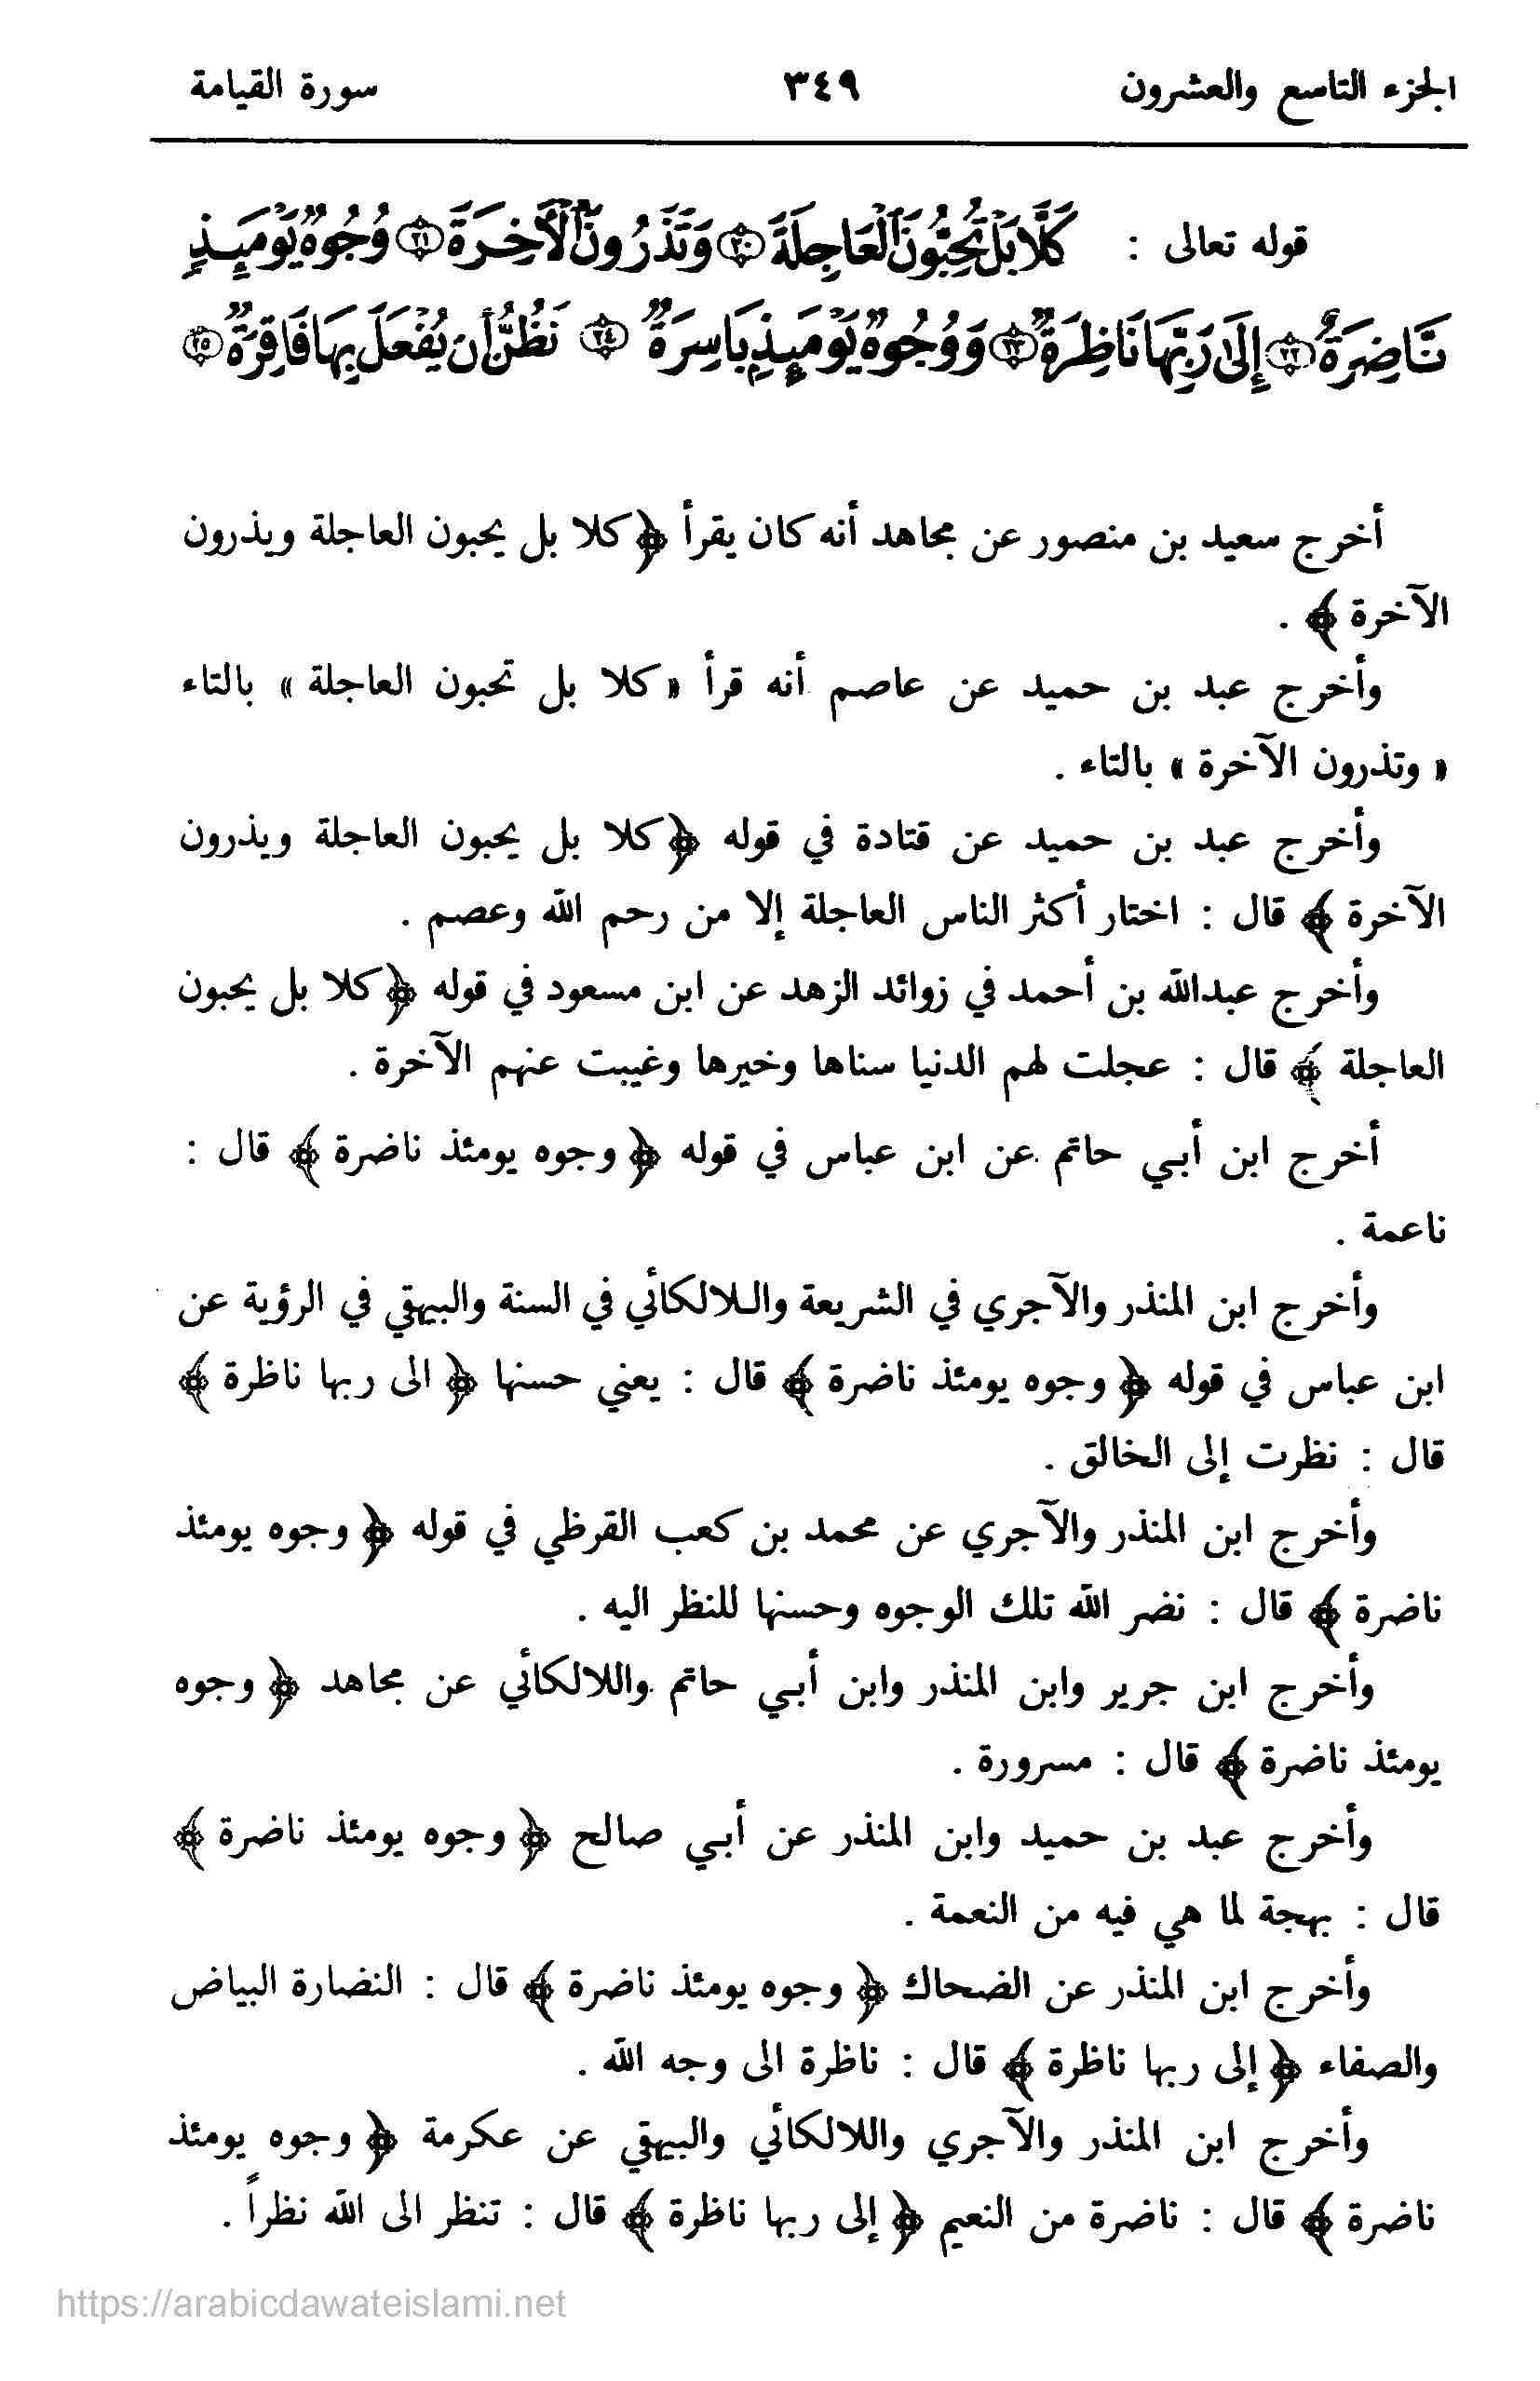 الجزء التاسع والعشرون ٣٤٩ سورة القيامة
قوله تعالى : كَلَّا بَلْ تُحِبُّونَ ٱلْعَاجِلَةَ ۝٢٠ وَتَذَرُونَ ٱلْآخِرَةَ ۝٢١ وُجُوهٌ يَوْمَئِذٍ
نَّاضِرَةٌ ۝٢٢ إِلَىٰ رَبِّهَا نَاظِرَةٌ ۝٢٣ وَوُجُوهٌ يَوْمَئِذٍ بَاسِرَةٌ ۝٢٤ تَظُنُّ أَن يُفْعَلَ بِهَا فَاقِرَةٌ ۝٢٥
أخرج سعيد بن منصور عن مجاهد أنه كان يقرأ ﴿ كلا بل يحبون العاجلة ويذرون
الآخرة ﴾ .
وأخرج عبد بن حميد عن عاصم أنه قرأ « كلا بل تحبون العاجلة » بالتاء
« وتذرون الآخرة » بالتاء .
وأخرج عبد بن حميد عن قتادة في قوله ﴿ كلا بل يحبون العاجلة ويذرون
الآخرة ﴾ قال : اختار أكثر الناس العاجلة إلا من رحم الله وعصم .
وأخرج عبدالله بن أحمد في زوائد الزهد عن ابن مسعود في قوله ﴿ كلا بل يحبون
العاجلة ﴾ قال : عجلت لهم الدنيا سناها وخيرها وغيبت عنهم الآخرة .
أخرج ابن أبي حاتم عن ابن عباس في قوله ﴿ وجوه يومئذ ناضرة ﴾ قال :
ناعمة .
وأخرج ابن المنذر والآجري في الشريعة واللالكائي في السنة والبيهقي في الرؤية عن
ابن عباس في قوله ﴿ وجوه يومئذ ناضرة ﴾ قال : يعني حسنها ﴿ الى ربها ناظرة ﴾
قال : نظرت إلى الخالق .
وأخرج ابن المنذر والآجري عن محمد بن كعب القرظي في قوله ﴿ وجوه يومئذ
ناضرة ﴾ قال : نضر الله تلك الوجوه وحسنها للنظر اليه .
وأخرج ابن جرير وابن المنذر وابن أبي حاتم واللالكائي عن مجاهد ﴿ وجوه
يومئذ ناضرة ﴾ قال : مسرورة .
وأخرج عبد بن حميد وابن المنذر عن أبي صالح ﴿ وجوه يومئذ ناضرة ﴾
قال : بهجة لما هي فيه من النعمة .
وأخرج ابن المنذر عن الضحاك ﴿ وجوه يومئذ ناضرة ﴾ قال : النضارة البياض
والصفاء ﴿ إلى ربها ناظرة ﴾ قال : ناظرة الى وجه الله .
وأخرج ابن المنذر والآجري واللالكائي والبيهقي عن عكرمة ﴿ وجوه يومئذ
ناضرة ﴾ قال : ناضرة من النعيم ﴿ إلى ربها ناظرة ﴾ قال : تنظر الى الله نظراً .
https://arabicdawateislami.net